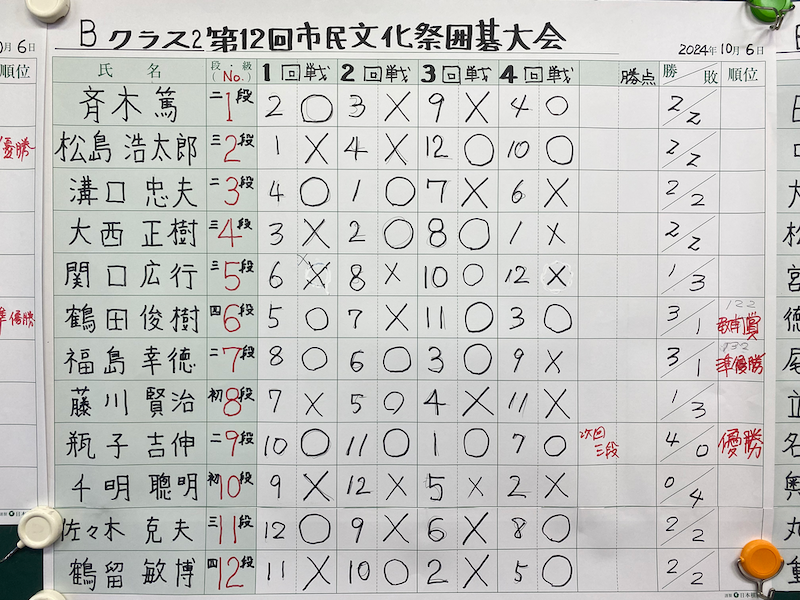 Bクラス2 第12回市民文化祭囲碁大会
2024年10月6日
氏 名 段・級(No.) 1回戦 2回戦 3回戦 4回戦 勝点 勝/敗 順位
斉木 篤 二1段 2 ○ 3 × 9 × 4 ○ 2/2
松島 浩太郎 三2段 1 × 4 × 12 ○ 10 ○ 2/2
溝口 忠夫 二3段 4 ○ 1 ○ 7 × 6 × 2/2
大西 正樹 三4段 3 × 2 ○ 8 ○ 1 × 2/2
関口 広行 三5段 6 × 8 × 10 ○ 12 × 1/3
鶴田 俊樹 四6段 5 ○ 7 × 11 ○ 3 ○ 3/1 敢闘賞
福島 幸徳 二7段 8 ○ 6 ○ 3 ○ 9 × 3/1 準優勝
藤川 賢治 初8段 7 × 5 ○ 4 × 11 × 1/3
瓶子 吉伸 二9段 10 ○ 11 ○ 1 ○ 7 ○ 次回三段 4/0 優勝
千明 聰明 初10段 9 × 12 × 5 × 2 × 0/4
佐々木 克夫 三11段 12 ○ 9 × 6 × 8 ○ 2/2
鶴留 敏博 四12段 11 × 10 ○ 2 × 5 ○ 2/2
月6日
順位
優勝
準優勝